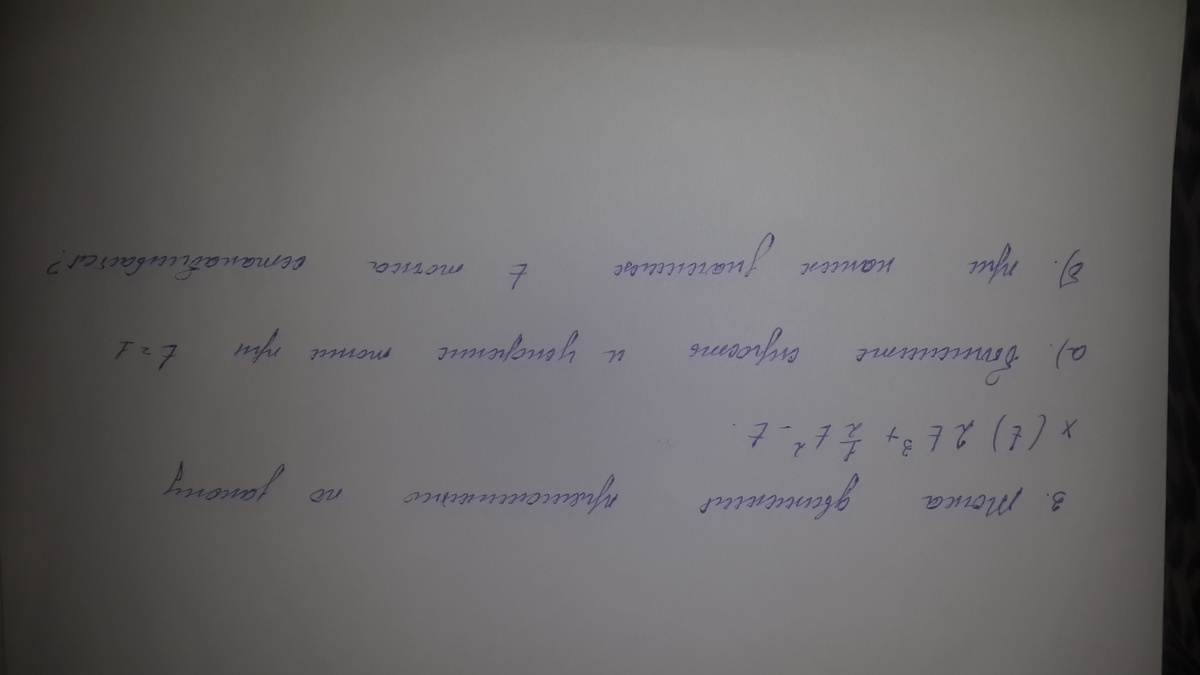 3. Точка движения прямолинейно по закону
x (t) 2t³ + 1/2 t² - t.
а). Вычислите скорость и ускорение точки при t = 1
б). при каких значениях t точка останавливается?